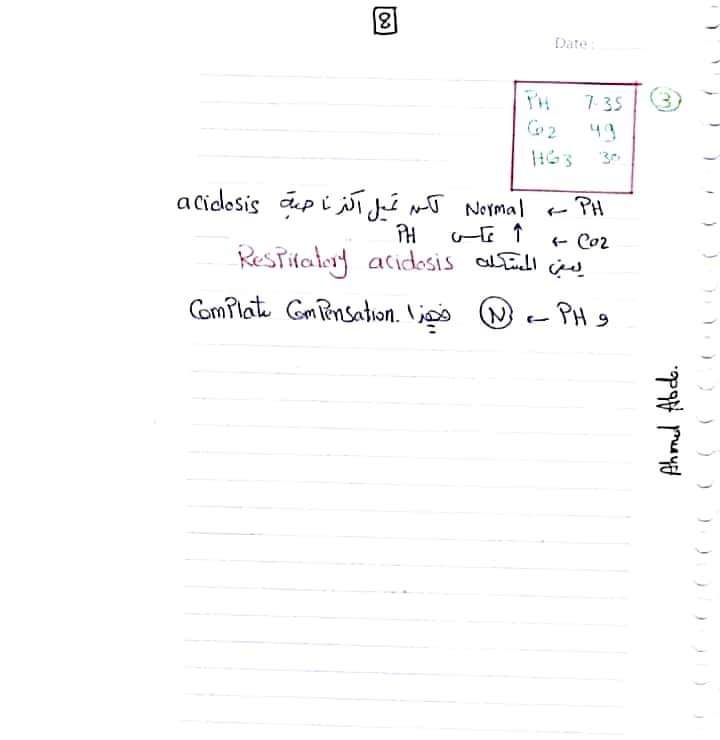 8
Date:
3
PH 7.35
Co2 49
HCo3 30
PH ← Normal لكن تميل أكثر ناحية acidosis
Co2 ← ↑ عكس PH
يبقى المشكلة Respiratory acidosis
و PH ← N فهذا Complate Compensation.
Ahmed Abdo.